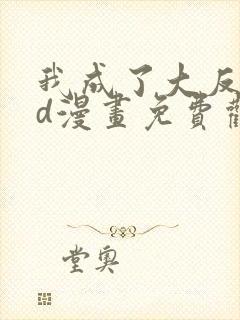 我成了大反
d漫畫免費觀
堂奧